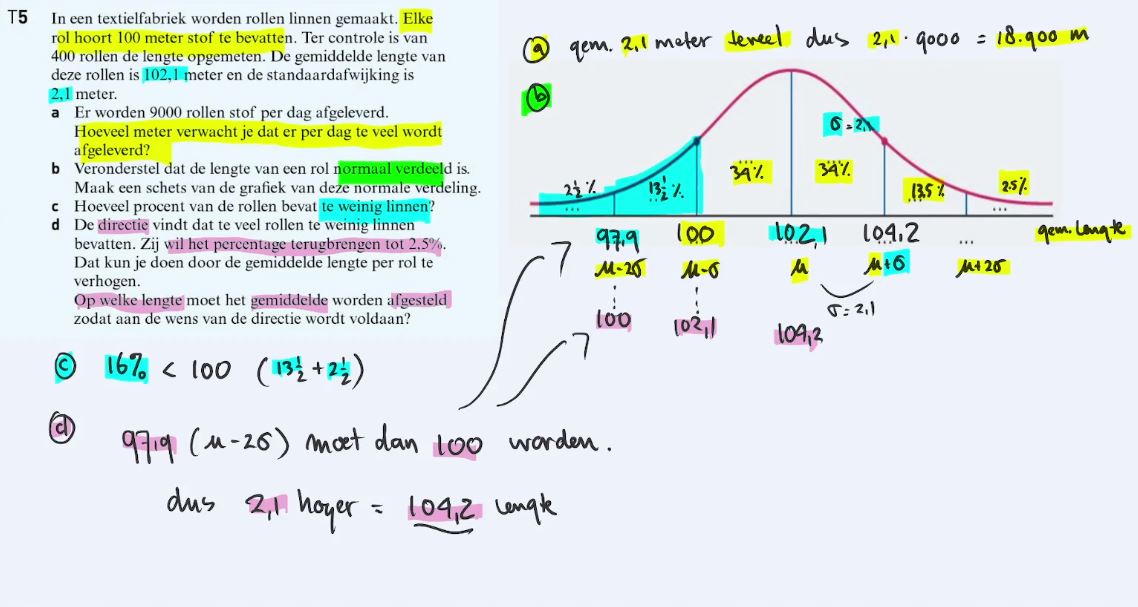 T5 In een textielfabriek worden rollen linnen gemaakt. Elke
rol hoort 100 meter stof te bevatten. Ter controle is van
400 rollen de lengte opgemeten. De gemiddelde lengte van
deze rollen is 102,1 meter en de standaardafwijking is
2,1 meter.
a Er worden 9000 rollen stof per dag afgeleverd.
Hoeveel meter verwacht je dat er per dag te veel wordt
afgeleverd?
b Veronderstel dat de lengte van een rol normaal verdeeld is.
Maak een schets van de grafiek van deze normale verdeling.
c Hoeveel procent van de rollen bevat te weinig linnen?
d De directie vindt dat te veel rollen te weinig linnen
bevatten. Zij wil het percentage terugbrengen tot 2,5%.
Dat kun je doen door de gemiddelde lengte per rol te
verhogen.
Op welke lengte moet het gemiddelde worden afgesteld
zodat aan de wens van de directie wordt voldaan?
a gem. 2,1 meter teveel dus 2,1 · 9000 = 18.900 m
b
σ = 2,1
2½ % 13½ % 34% 34% 13,5% 2,5%
... ... ... ... ... ...
97,9 100 102,1 104,2 ... gem. lengte
μ-2σ μ-σ μ μ+σ μ+2σ
σ = 2,1
100 102,1 104,2
c 16% < 100 (13½ + 2½)
d 97,9 (μ-2σ) moet dan 100 worden.
dus 2,1 hoger = 104,2 lengte